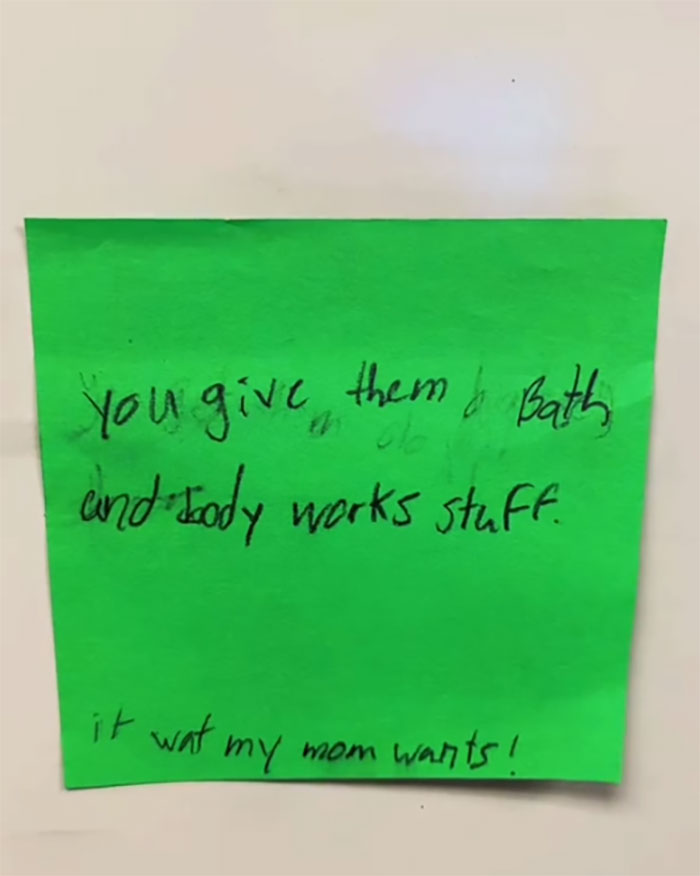 you give them Bath
and body works stuff.
it wat my mom wants!